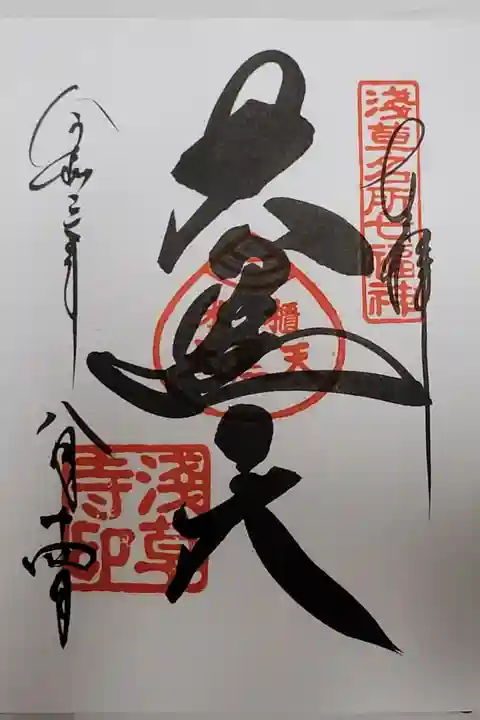 奉拝
淺草名所七福神
大黒天
令和三年
八月十四日
淺草
寺印